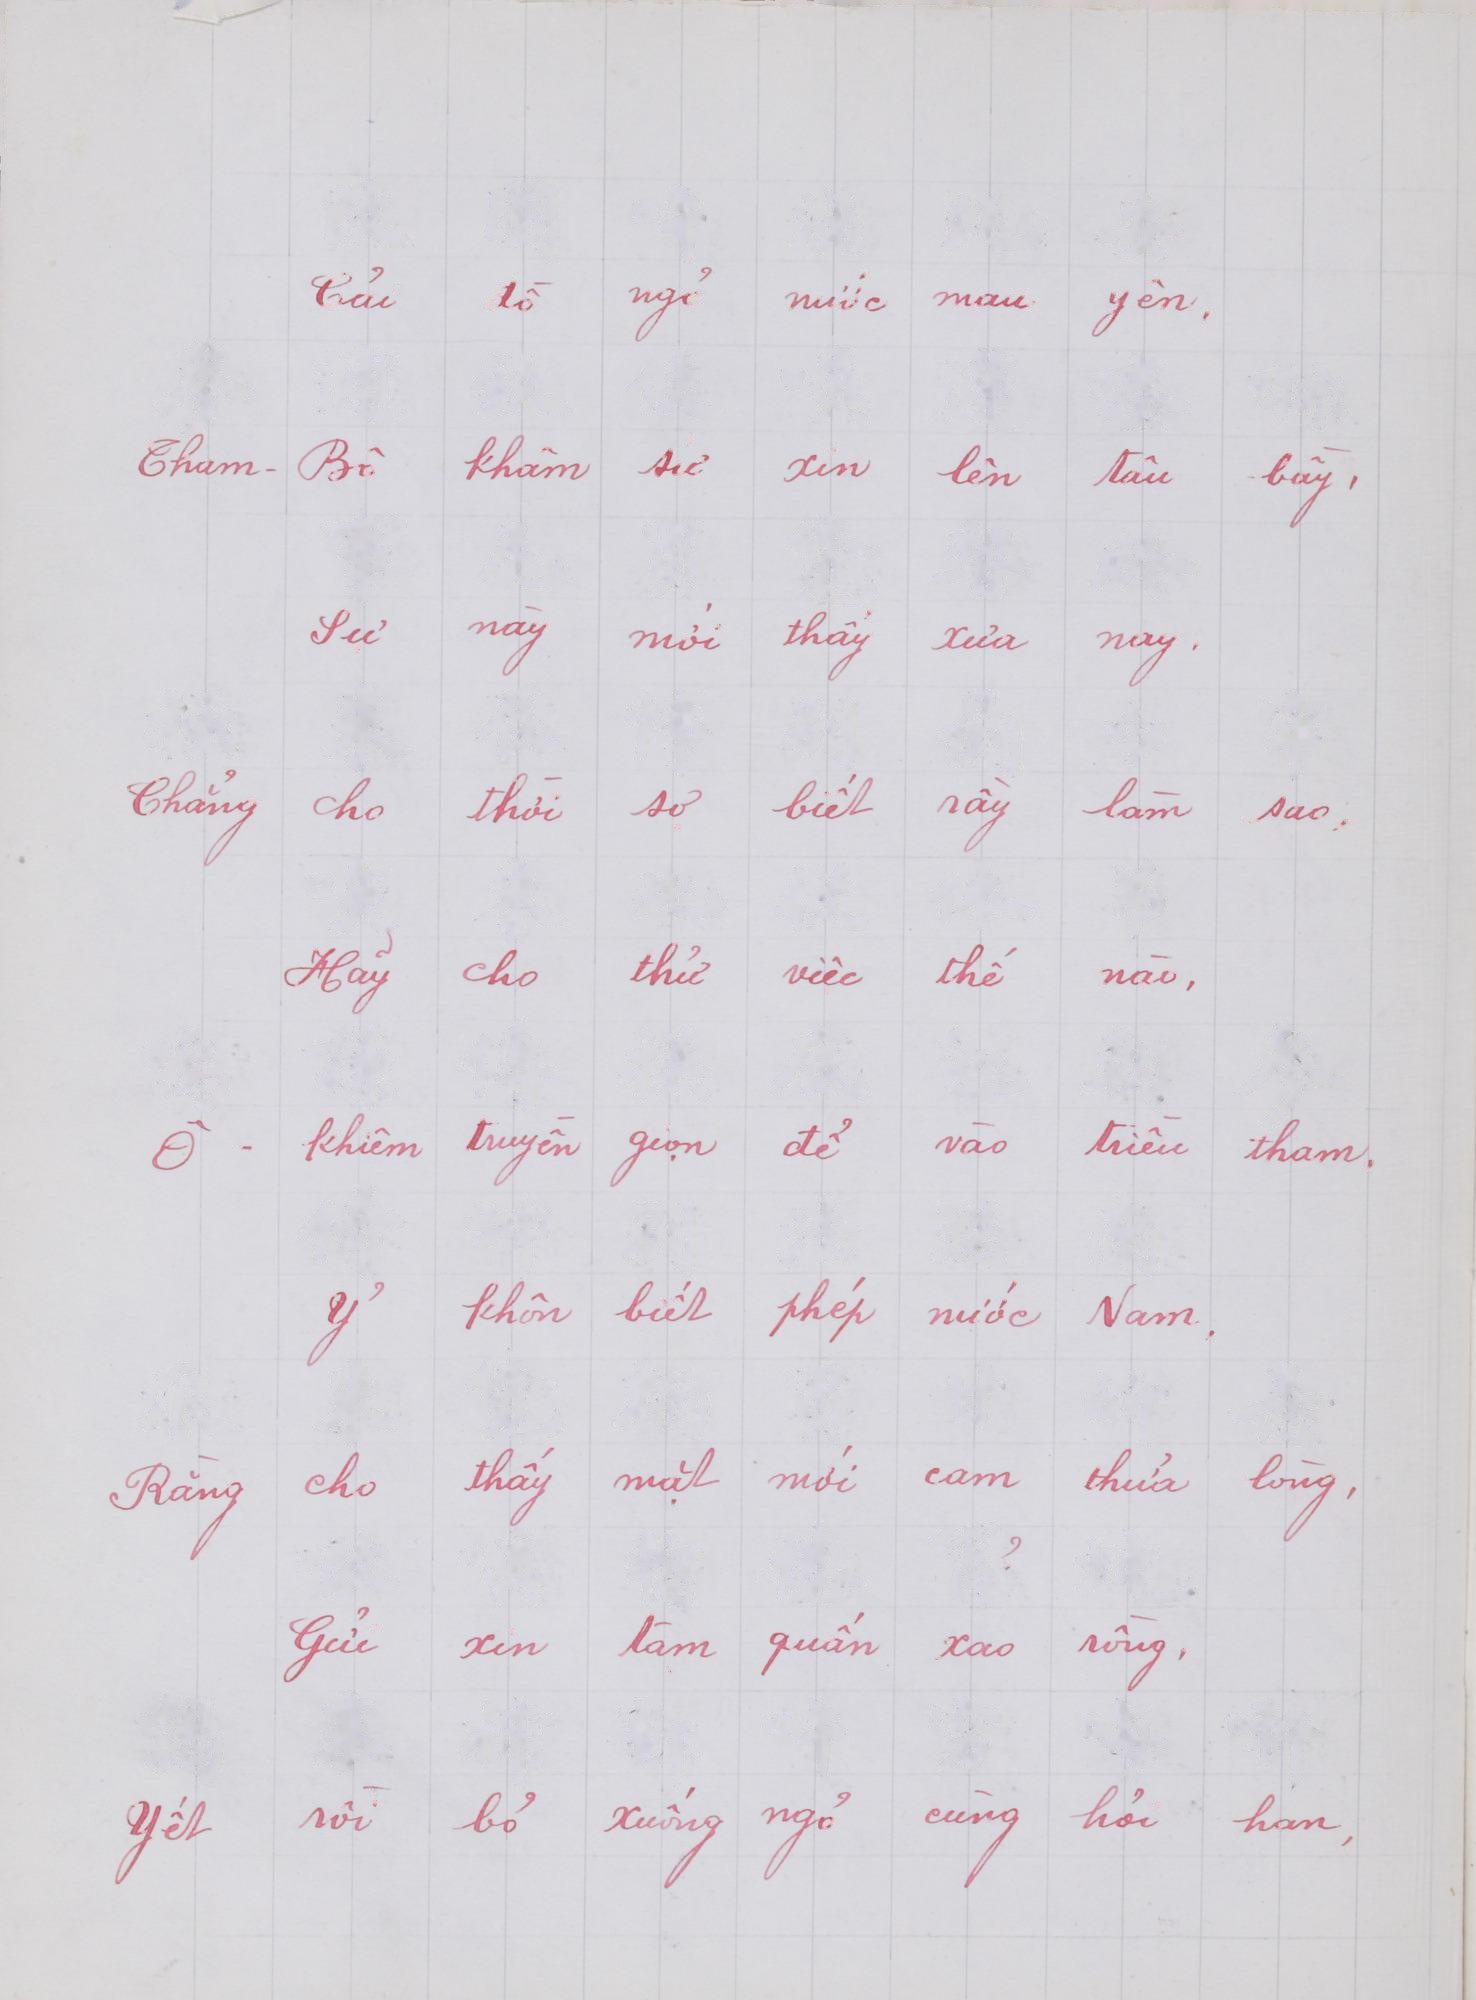 Cải tồ ngỏ nước mau yên.
Tham- Bô khâm sứ xin lên tâu bầy,
Sự này mới thấy xưa nay.
Chẳng cho thời sơ biết rầy làm sao.
Hãy cho thử viêc thế nào,
Ô - khiêm truyền gion để vào triều tham.
Ỷ khôn biết phép nước Nam.
Rằng cho thấy mặt mới cam thửa lòng,
?
Gửi xin tàm quấn xao rồng,
Yết rồi bỏ xuống ngỏ cùng hỏi han,